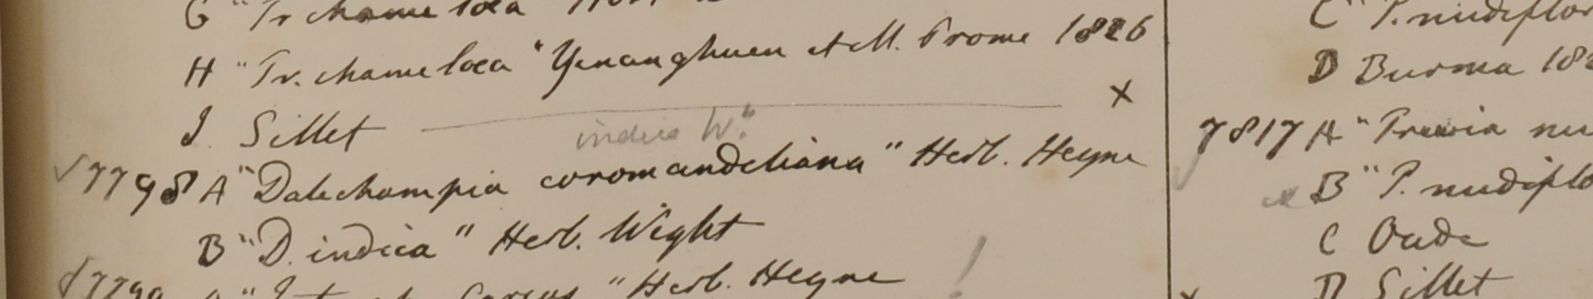 G "Tr chamelaea
H "Tr. chamelaea" Yenanghuen et M. Prome 1826
I Sillet x
indica W.
√7798 A "Dalechampia coromandeliana" Herb. Heyne
B "D. indica" Herb. Wight
" Herb. Heyne
C "P. nudiflor
D Burma 182
7817 A "Trewia nu
B "P. nudiflo
C Oude
D Sillet